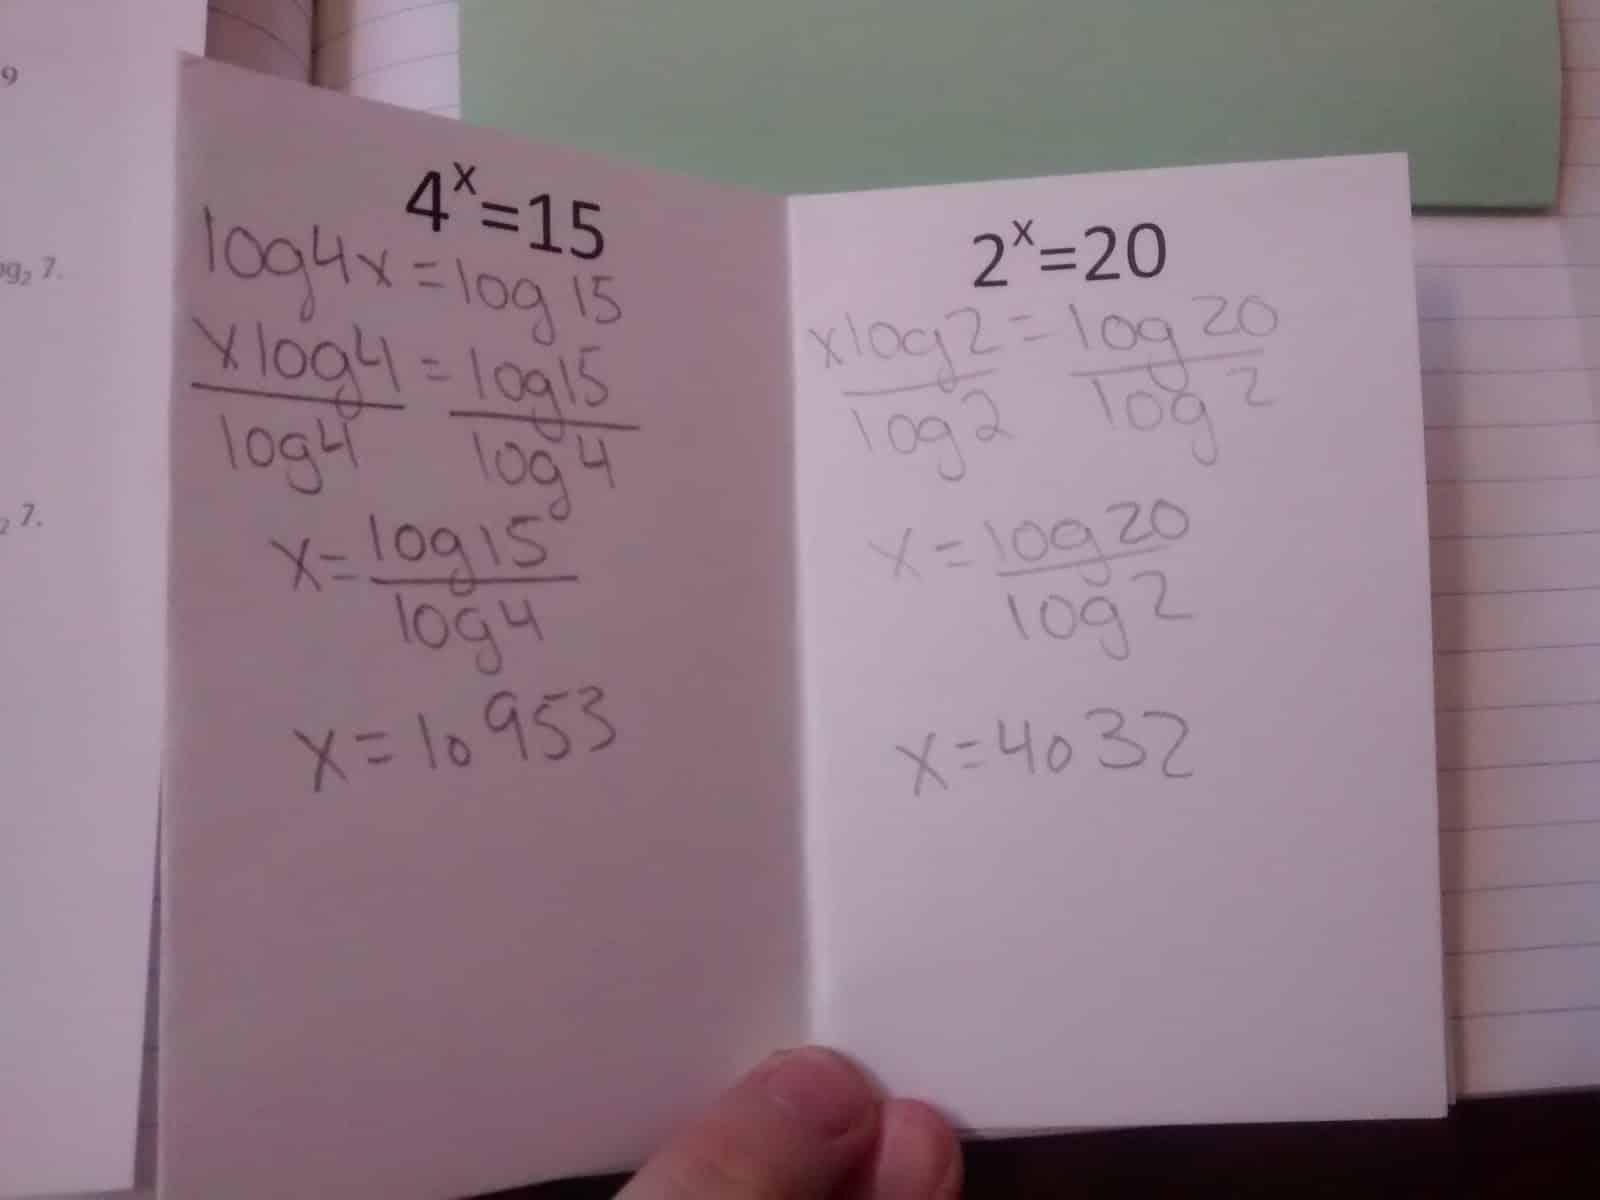 9
og₂ 7.
₂ 7.
4ˣ=15
log4x = log 15
x log4 = log15
log4 log 4
x = log 15
log 4
x = 1.0953
2ˣ=20
x log 2 = log 20
log 2 log 2
x = log 20
log 2
x = 4.032